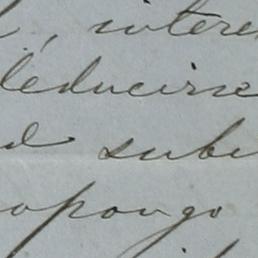 , intere
deducirse
d subi
opongo